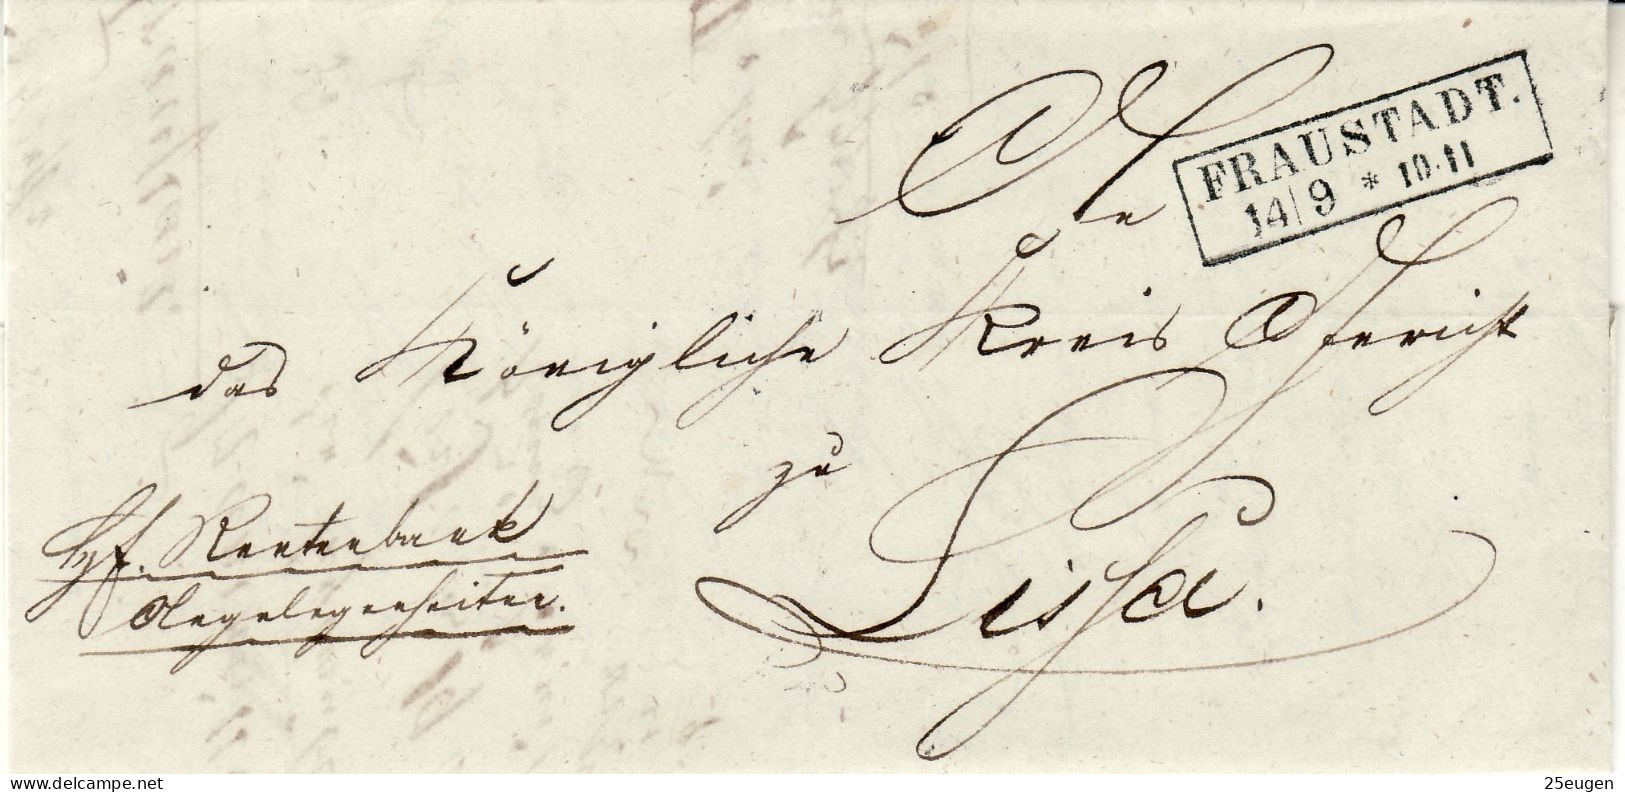 An
FRAUSTADT.
14/9 * 10-11
das Königliche Kreis Gericht
zu
Lissa.
Rentenbank
Angelegenheiten.
www.delcampe.net
25eugen